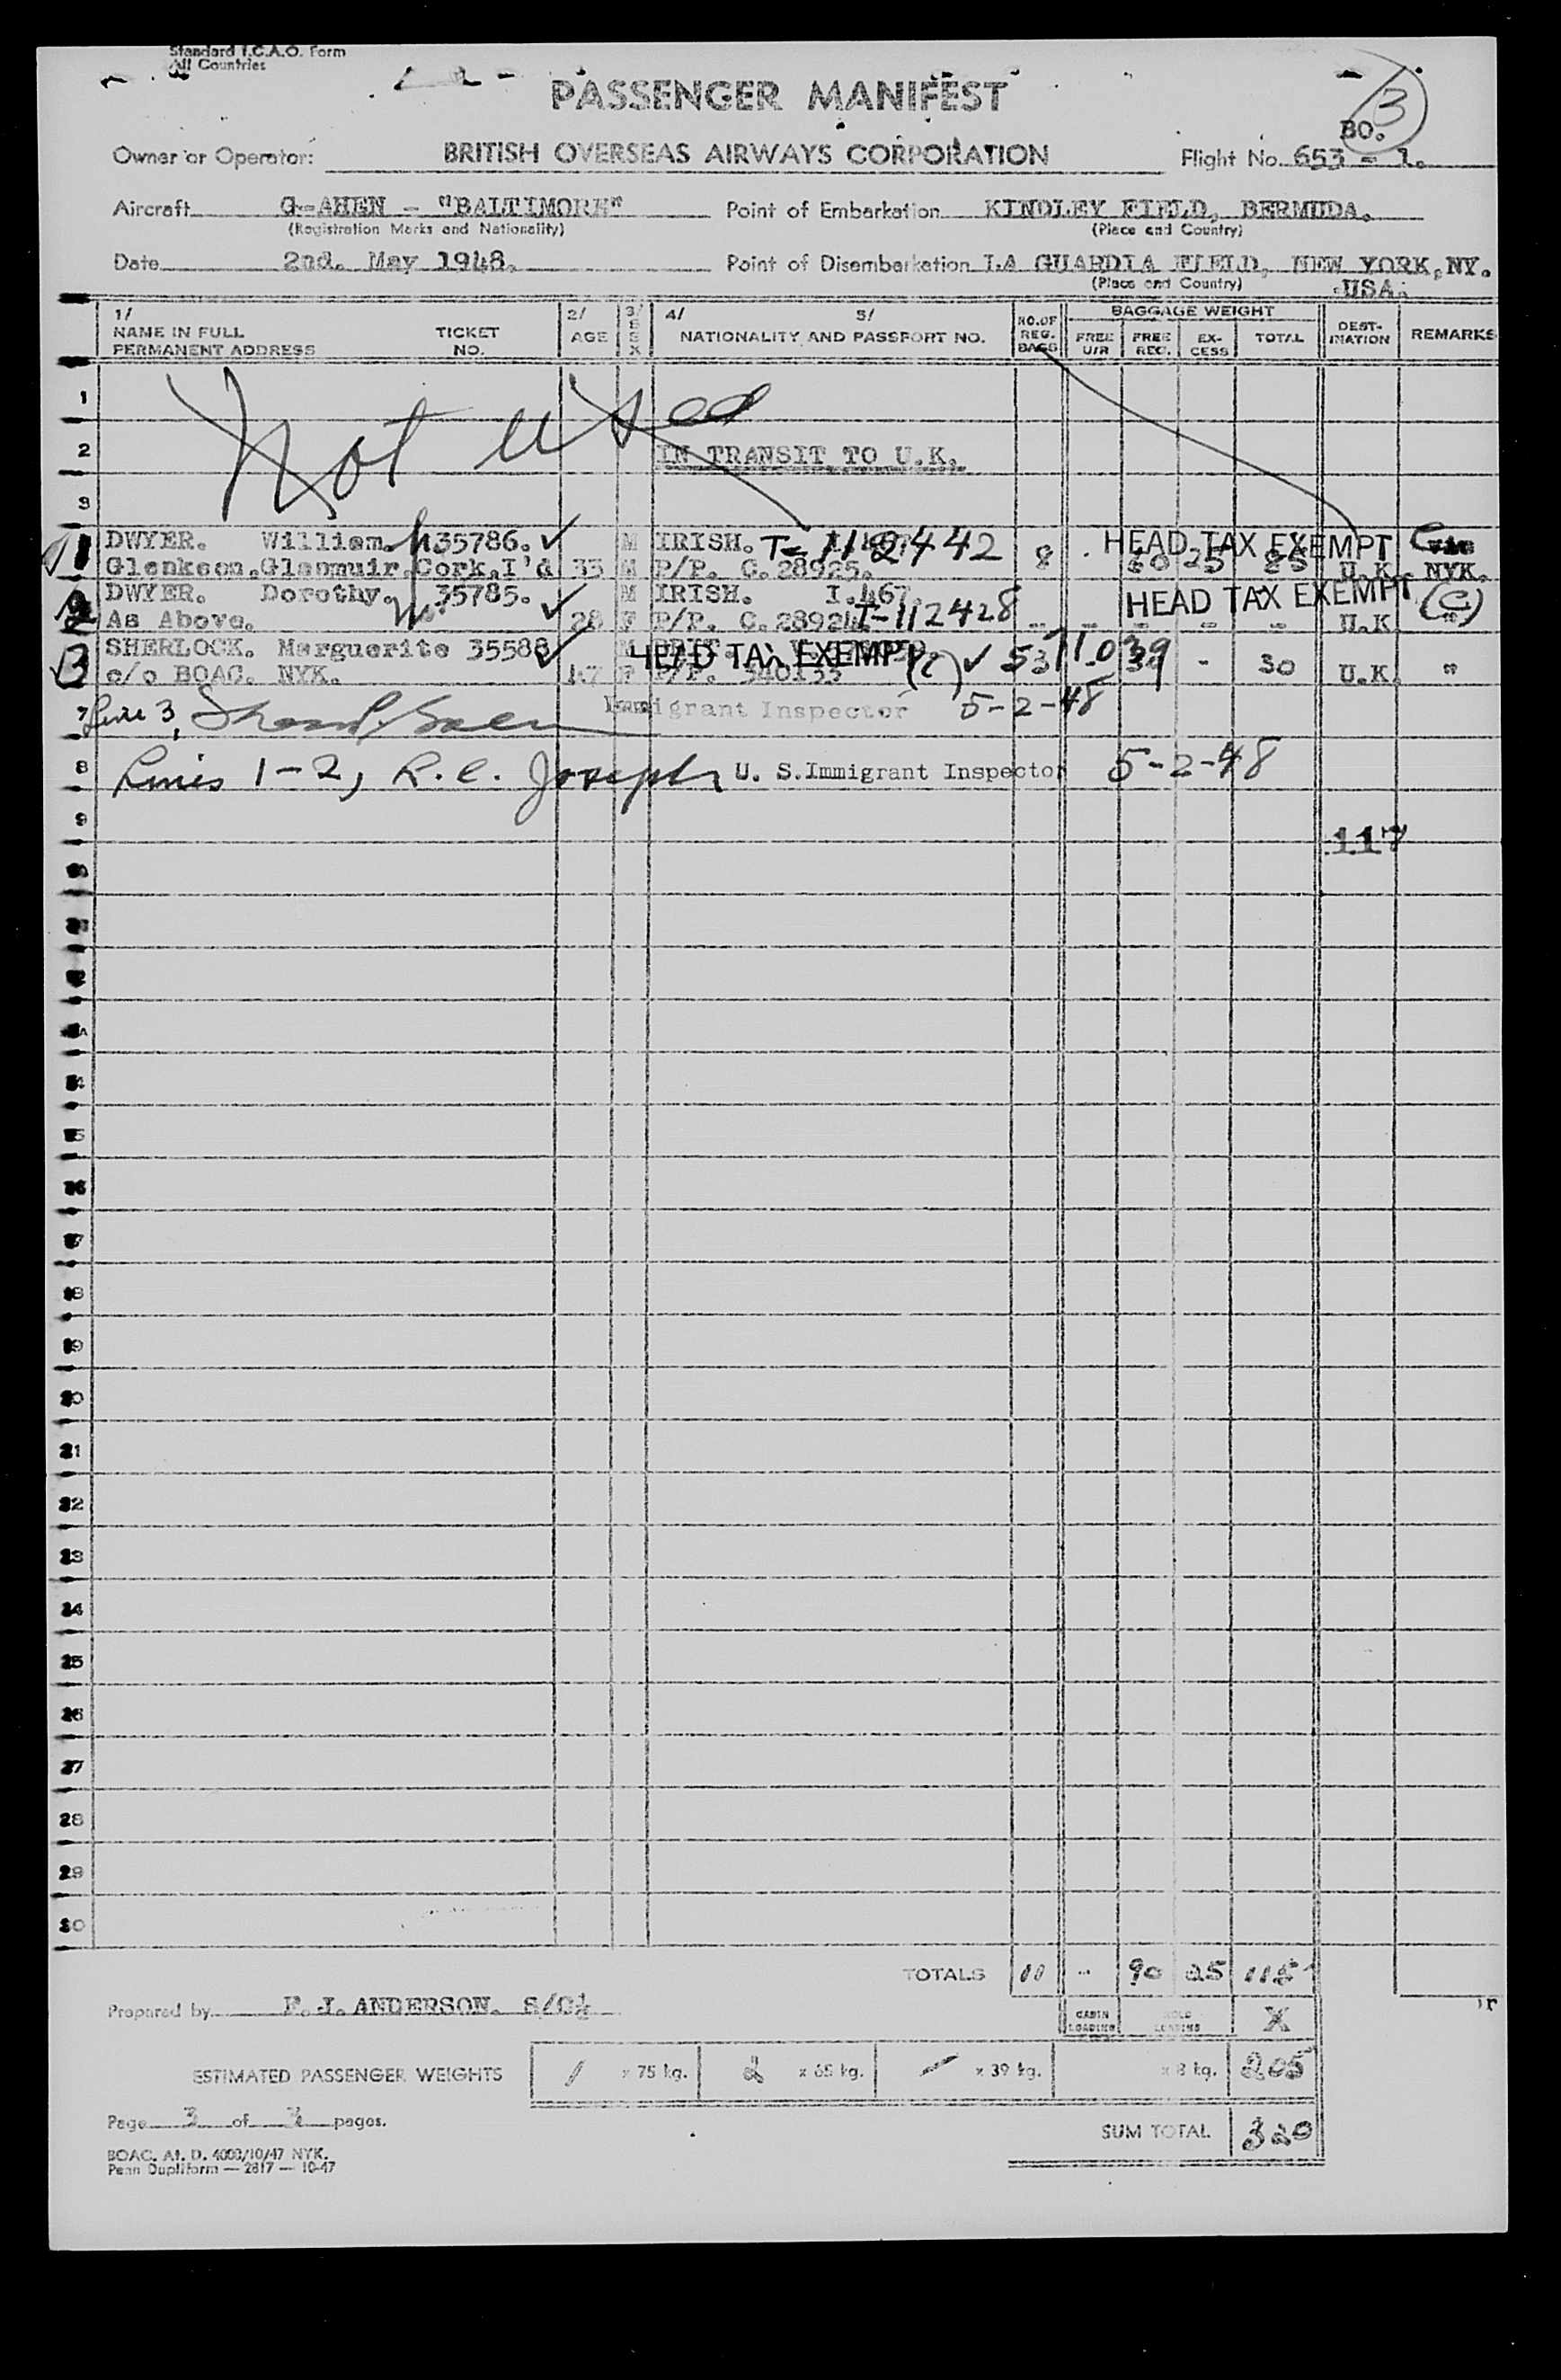 Standard I.C.A.O. Form
All Countries
PASSENGER MANIFEST
3
BO.
Owner or Operator: BRITISH OVERSEAS AIRWAYS CORPORATION Flight No. 653 - 1.
Aircraft G-AHEN - "BALTIMORE" Point of Embarkation KINDLEY FIELD, BERMUDA.
(Registration Marks and Nationality) (Place and Country)
Date 2nd. May 1948. Point of Disembarkation LA GUARDIA FIELD, NEW YORK, NY.
(Place and Country) USA.
1/ NAME IN FULL PERMANENT ADDRESS TICKET NO. 2/ AGE 3/ SEX 4/ 5/ NATIONALITY AND PASSPORT NO. NO. OF REG. BAGS BAGGAGE WEIGHT FREE U/R FREE REG. EX-CESS TOTAL DEST-INATION REMARKS
1
Not used
2 IN TRANSIT TO U.K.
3
1 DWYER. William. 35786. M IRISH. T-112442 HEAD TAX EXEMPT C via
Glenkeen.Glanmuir.Cork.I'd 33 M P/P. C.28925. 8 60 25 85 U.K. NYK.
2 DWYER. Dorothy. 35785. M IRISH. I.467. HEAD TAX EXEMPT (C)
As Above. 28 F P/P. C.28924 T-112428 - - - - - U.K. "
3 SHERLOCK. Marguerite 35588 M HEAD TAX EXEMPT (C)
c/o BOAC. NYK. 47 F P/P. 340133 30 - 30 U.K. "
7 Line 3, Immigrant Inspector 5-2-48
8 Lines 1-2, R.C. Joseph U. S. Immigrant Inspector 5-2-48
9
117
14
15
16
17
18
19
20
21
22
23
24
25
26
27
28
29
30
TOTALS 11 - 90 25 115
Prepared by F. J. ANDERSON. S/O½ CABIN LOADING HOLD LOADING X
ESTIMATED PASSENGER WEIGHTS 1 x 75 kg. 2 x 65 kg. - x 39 kg. x 8 kg. 205
Page 3 of 3 pages.
SUM TOTAL 320
BOAC. At. D. 4000/10/47 NYK.
Penn Dupliform — 2817 — 10-47